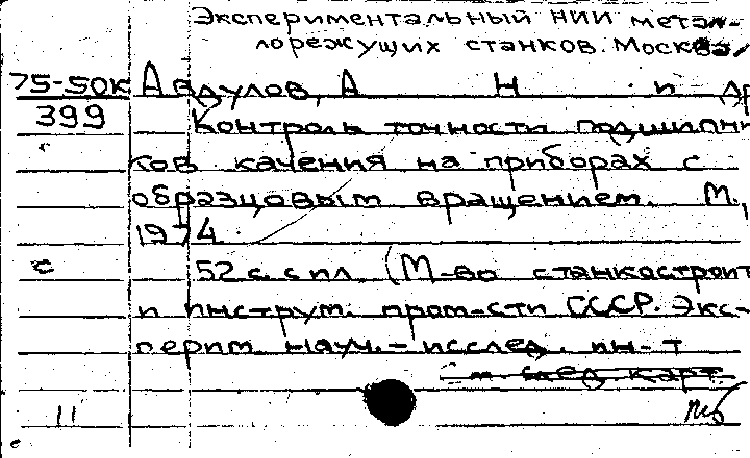 Экспериментальный НИИ метал-
лорежущих станков. Москва
75-50к Авдулов, А Н и др
399 Контроль точности подшипни
ков качения на приборах с
образцовым вращением. М.,
1974.
с 52 с. с ил. (М-во станкостроит
и инструм. пром-сти СССР. Экс-
перим. науч.-исслед. ин-т
см след карт
11